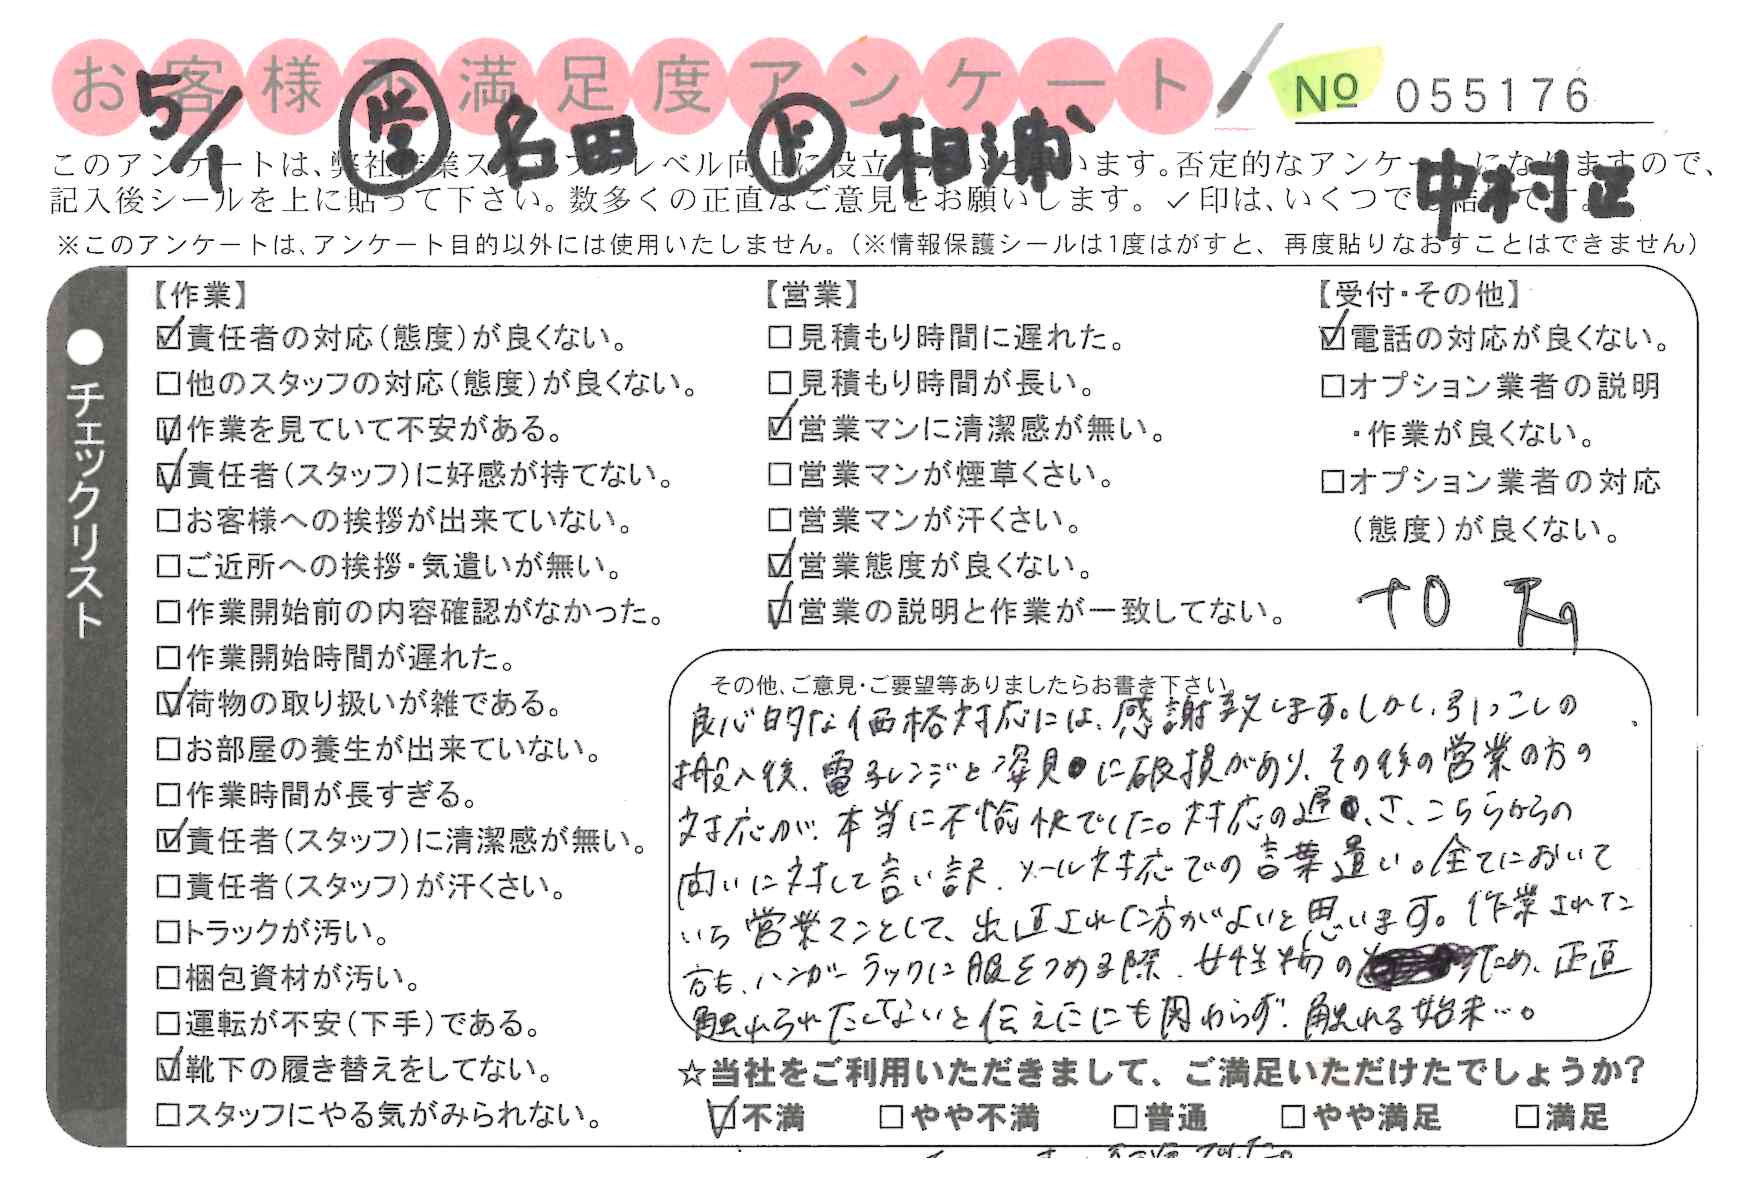 お客様不満足度アンケート
№ 055176
5/1 営 名田 ド 相浦
中村正
このアンケートは、弊社作業スタッフのレベル向上に役立ていと思います。否定的なアンケートになりますので、
記入後シールを上に貼って下さい。数多くの正直なご意見をお願いします。✓印は、いくつでも結構です。
※このアンケートは、アンケート目的以外には使用いたしません。(※情報保護シールは1度はがすと、再度貼りなおすことはできません)
●チェックリスト
【作業】
☑責任者の対応(態度)が良くない。
□他のスタッフの対応(態度)が良くない。
☑作業を見ていて不安がある。
☑責任者(スタッフ)に好感が持てない。
□お客様への挨拶が出来ていない。
□ご近所への挨拶・気遣いが無い。
□作業開始前の内容確認がなかった。
□作業開始時間が遅れた。
☑荷物の取り扱いが雑である。
□お部屋の養生が出来ていない。
□作業時間が長すぎる。
☑責任者(スタッフ)に清潔感が無い。
□責任者(スタッフ)が汗くさい。
□トラックが汚い。
□梱包資材が汚い。
□運転が不安(下手)である。
☑靴下の履き替えをしてない。
□スタッフにやる気がみられない。
【営業】
□見積もり時間に遅れた。
□見積もり時間が長い。
☑営業マンに清潔感が無い。
□営業マンが煙草くさい。
□営業マンが汗くさい。
☑営業態度が良くない。
☑営業の説明と作業が一致してない。
【受付・その他】
☑電話の対応が良くない。
□オプション業者の説明
・作業が良くない。
□オプション業者の対応
(態度)が良くない。
その他、ご意見・ご要望等ありましたらお書き下さい。
良心的な価格対応には、感謝致します。しかし、引っこしの
搬入後、電子レンジと姿見に破損があり、その後の営業の方の
対応が、本当に不愉快でした。対応の遅さ、こちらからの
問いに対して言い訳、メール対応での言葉遣い。全てにおいて
いち営業マンとして、出直された方がよいと思います。作業された
方も、ハンガーラックに服をつめる際、女性物のため、正直
触れられたくないと伝えたにも関わらず、触れる始末…。
☆当社をご利用いただきまして、ご満足いただけたでしょうか?
☑不満 □やや不満 □普通 □やや満足 □満足